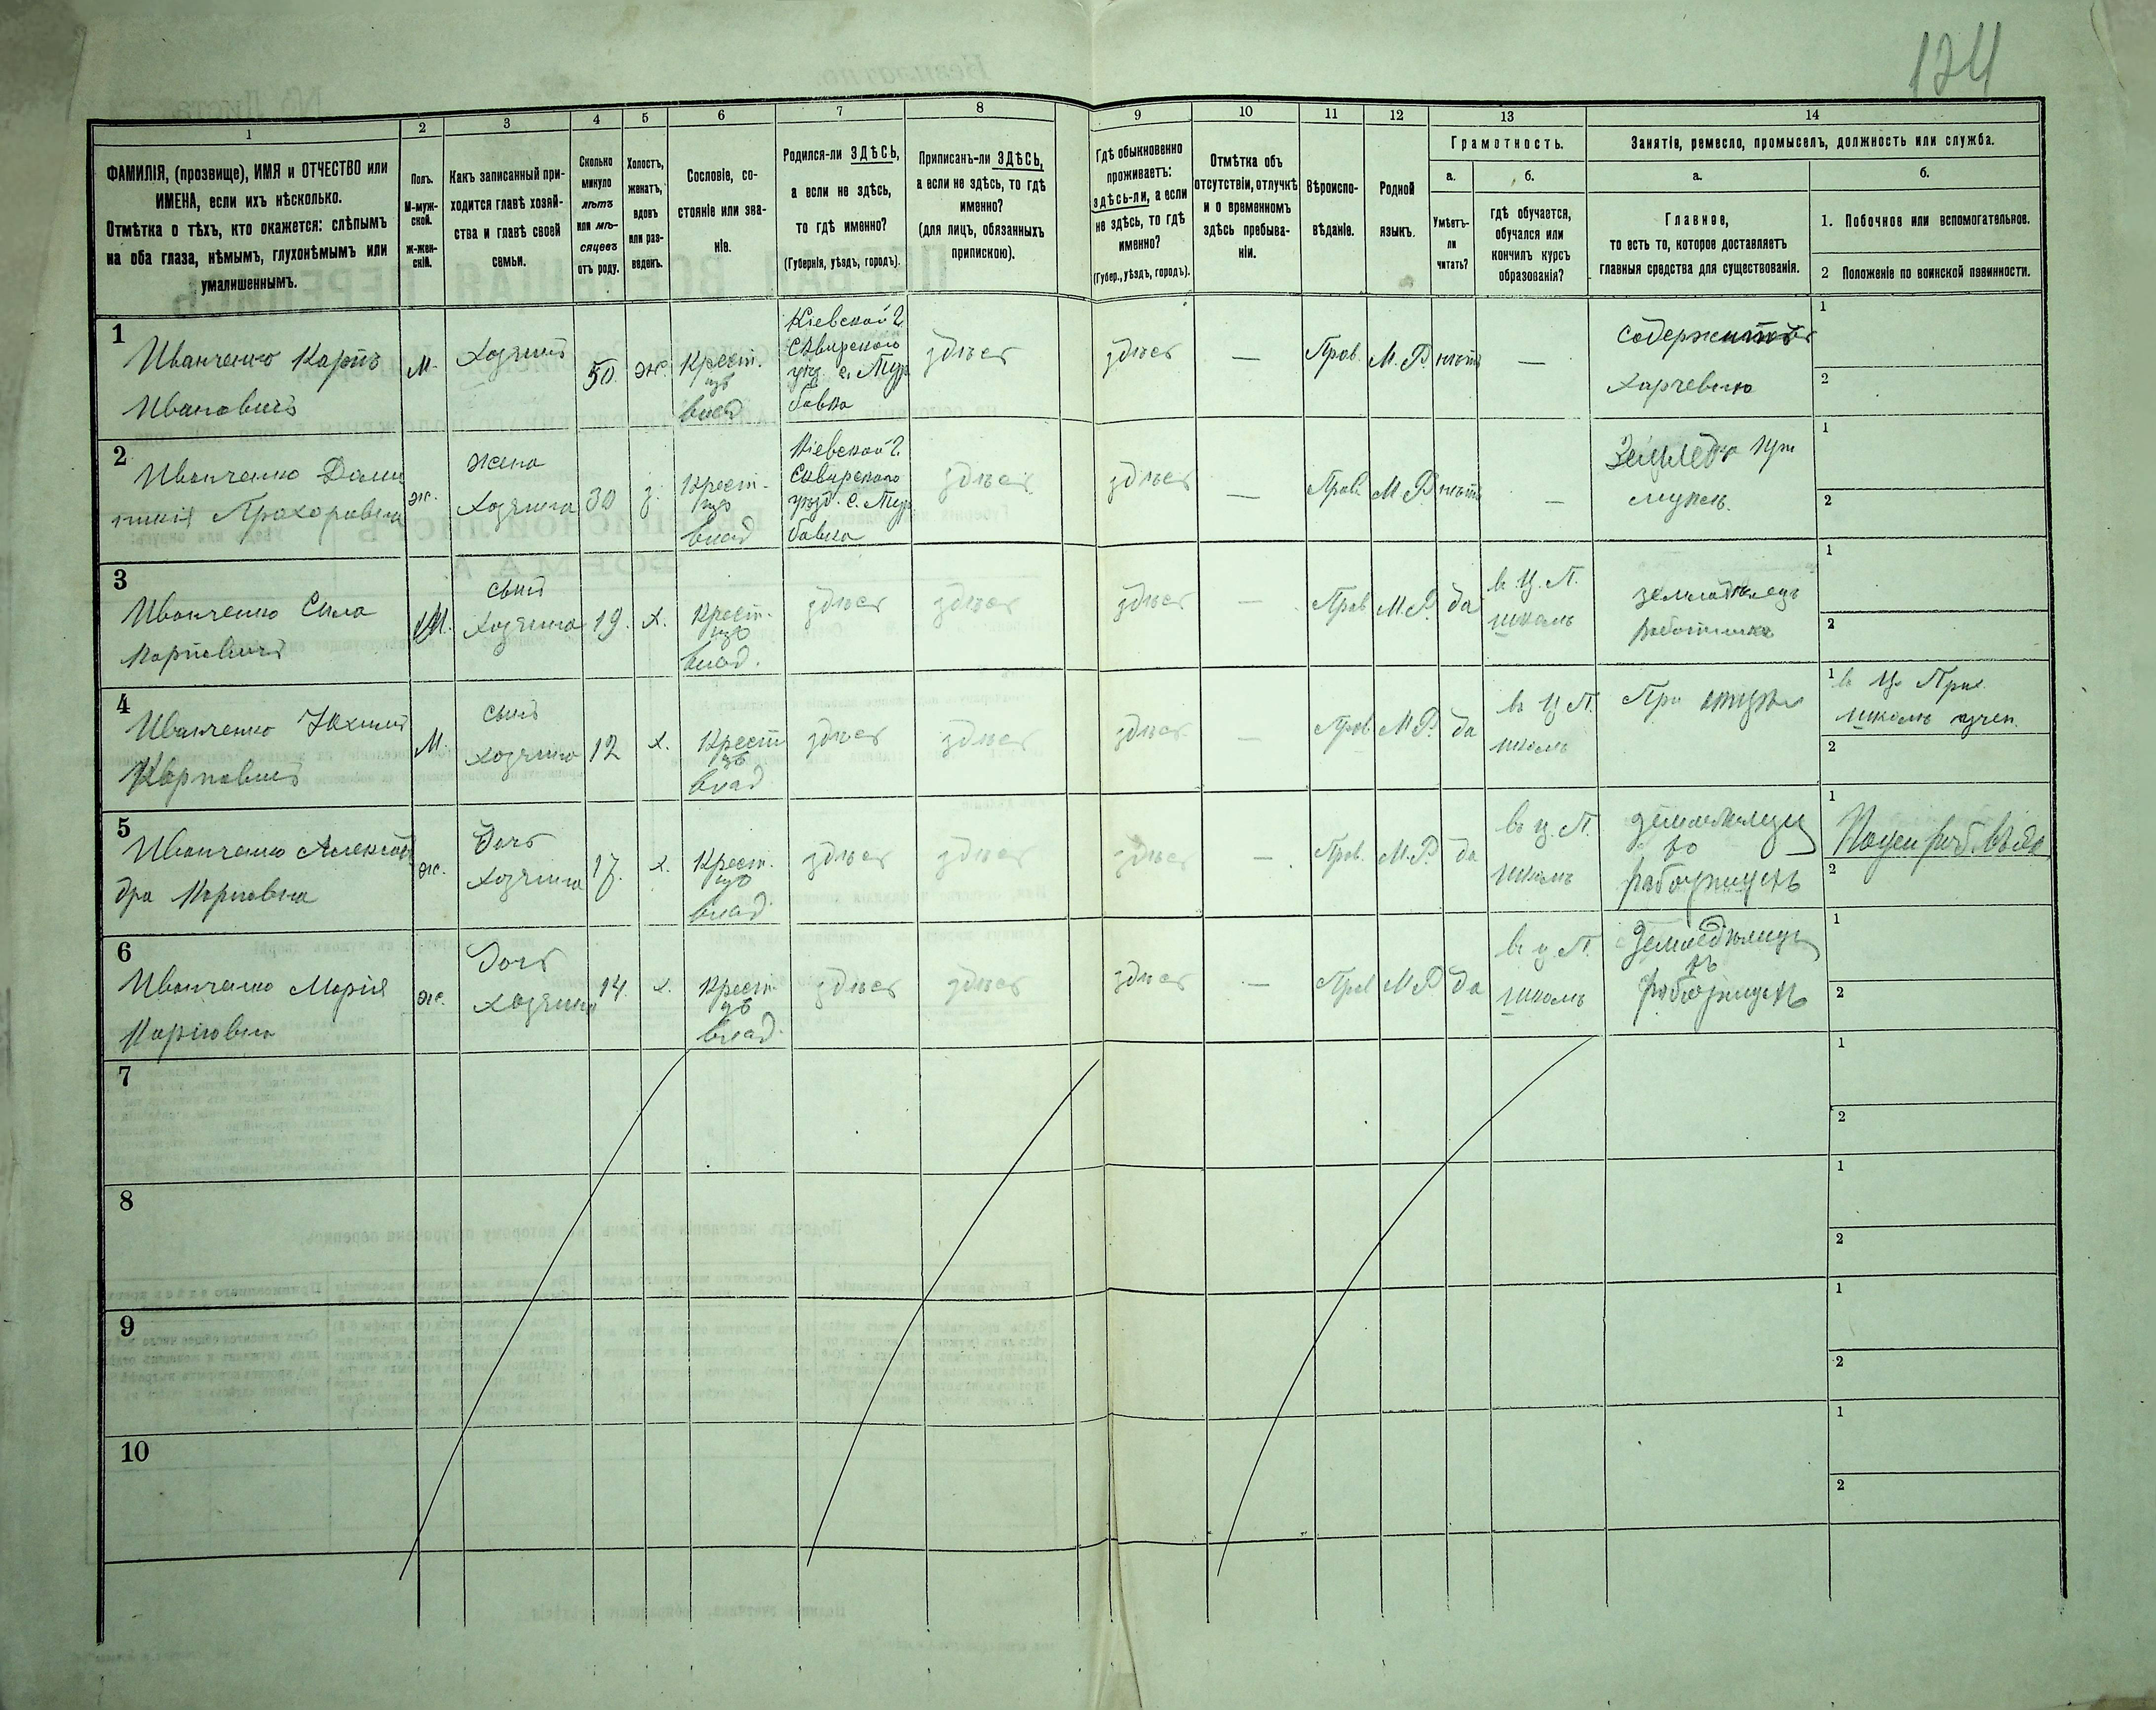 124
1 2 3 4 5 6 7 8 9 10 11 12 13 14
ФАМИЛІЯ, (прозвище), ИМЯ и ОТЧЕСТВО или
ИМЕНА, если ихъ нѣсколько.
Отмѣтка о тѣхъ, кто окажется: слѣпымъ
на оба глаза, нѣмымъ, глухонѣмымъ или
умалишеннымъ.
Полъ.
М-муж-
ской.
ж-жен-
скій.
Какъ записанный при-
ходится главѣ хозяй-
ства и главѣ своей
семьи.
Сколько
минуло
лѣтъ
или мѣ-
сяцевъ
отъ роду.
Холостъ,
женатъ,
вдовъ
или раз-
веденъ.
Сословіе, со-
стояніе или зва-
ніе.
Родился-ли ЗДѢСЬ,
а если не здѣсь,
то гдѣ именно?
(Губернія, уѣздъ, городъ).
Приписанъ-ли ЗДѢСЬ,
а если не здѣсь, то гдѣ
именно?
(для лицъ, обязанныхъ
припискою).
Гдѣ обыкновенно
проживаетъ:
здѣсь-ли, а если
не здѣсь, то гдѣ
именно?
(Губер., уѣздъ, городъ).
Отмѣтка объ
отсутствіи, отлучкѣ
и о временномъ
здѣсь пребыва-
ніи.
Вѣроиспо-
вѣданіе.
Родной
языкъ.
Грамотность.
а.
Умѣетъ-
ли
читать?
б.
гдѣ обучается,
обучался или
кончилъ курсъ
образованія?
Занятіе, ремесло, промыселъ, должность или служба.
а.
Главное,
то есть то, которое доставляетъ
главныя средства для существованія.
б.
1. Побочное или вспомогательное.
2 Положеніе по воинской повинности.
1
Иванченко Карпъ
Ивановичъ
М.
Хозяинъ
50
ж.
Крест.
изъ
влад
Кіевской г.
Сквирского
уѣз. с. Тур
бовка
здѣсь
здѣсь
—
Прав.
М. Р.
нѣтъ
—
содержитъ
харчевню
1
2
2
Иванченко Доми
никія Прохоровна
ж.
жена
Хозяина
30
з.
Крест.
изъ
влад
Кіевской г.
Сквирского
уѣзд. с. Тур
бовка
здѣсь
здѣсь
—
Прав.
М Р.
нѣтъ
—
при
мужѣ.
1
2
3
Иванченко Сила
Карповичъ
М.
сынъ
Хозяина
19.
х.
Крест.
изъ
влад.
здѣсь
здѣсь
здѣсь
—
Прав
М. Р.
да
въ Ц. П.
школѣ
земледѣлецъ
работникъ
1
2
4
Иванченко
Карповичъ
М.
сынъ
хозяина
12
х.
Крест
изъ
влад
здѣсь
здѣсь
здѣсь
—
Прав
М Р.
да
въ Ц П.
школѣ
При отцѣ
1 въ Ц. Прих.
школѣ учен.
2
5
Иванченко Алексан
дра Карповна
ж.
Дочь
хозяина
17.
х.
Крест.
изъ
влад.
здѣсь
здѣсь
здѣсь
—
Прав.
М. Р.
да
въ Ц. П.
школѣ
1
2
6
Иванченко Марія
Карповна
ж.
Дочь
хозяина
14.
х.
Крест
изъ
влад.
здѣсь
здѣсь
здѣсь
—
Прав
М Р
да
въ Ц П.
школѣ
1
2
7
1
2
8
1
2
9
1
2
10
1
2